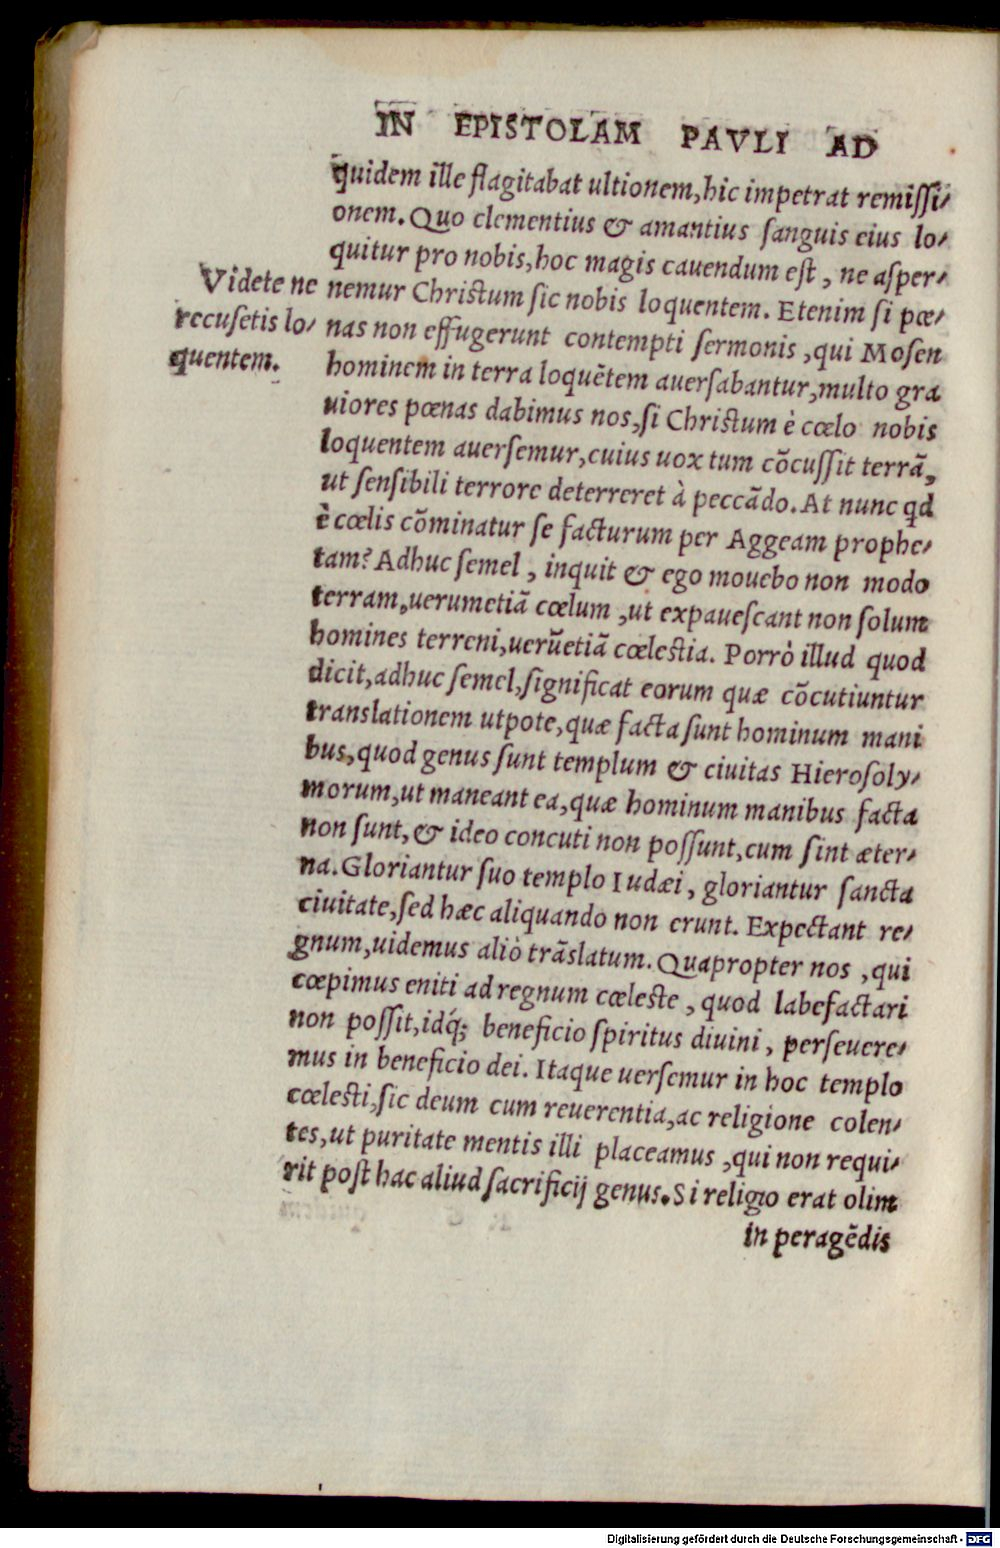 IN EPISTOLAM PAVLI AD
quidem ille flagitabat ultionem, hic impetrat remissi-
onem. Quo clementius & amantius sanguis eius lo-
quitur pro nobis, hoc magis cauendum est, ne asper-
Videte ne
recusetis lo-
quentem.
nemur Christum sic nobis loquentem. Etenim si pœ-
nas non effugerunt contempti sermonis, qui Mosen
hominem in terra loquẽtem auersabantur, multo gra
uiores pœnas dabimus nos, si Christum è cœlo nobis
loquentem auersemur, cuius uox tum cõcussit terrã,
ut sensibili terrore deterreret à peccãdo. At nunc qd
è cœlis cõminatur se facturum per Aggeam prophe-
tam? Adhuc semel, inquit & ego mouebo non modo
terram, uerumetiã cœlum, ut expauescant non solum
homines terreni, uerũetiã cœlestia. Porrò illud quod
dicit, adhuc semel, significat eorum quæ cõcutiuntur
translationem utpote, quæ facta sunt hominum mani
bus, quod genus sunt templum & ciuitas Hierosoly-
morum, ut maneant ea, quæ hominum manibus facta
non sunt, & ideo concuti non possunt, cum sint æter-
na. Gloriantur suo templo Iudæi, gloriantur sancta
ciuitate, sed hæc aliquando non erunt. Expectant re-
gnum, uidemus aliò trãslatum. Quapropter nos, qui
cœpimus eniti ad regnum cœleste, quod labefactari
non possit, idq́; beneficio spiritus diuini, perseuere-
mus in beneficio dei. Itaque uersemur in hoc templo
cœlesti, sic deum cum reuerentia, ac religione colen-
tes, ut puritate mentis illi placeamus, qui non requi-
rit post hac aliud sacrificij genus. Si religio erat olim
in peragẽdis
Digitalisierung gefördert durch die Deutsche Forschungsgemeinschaft - DFG